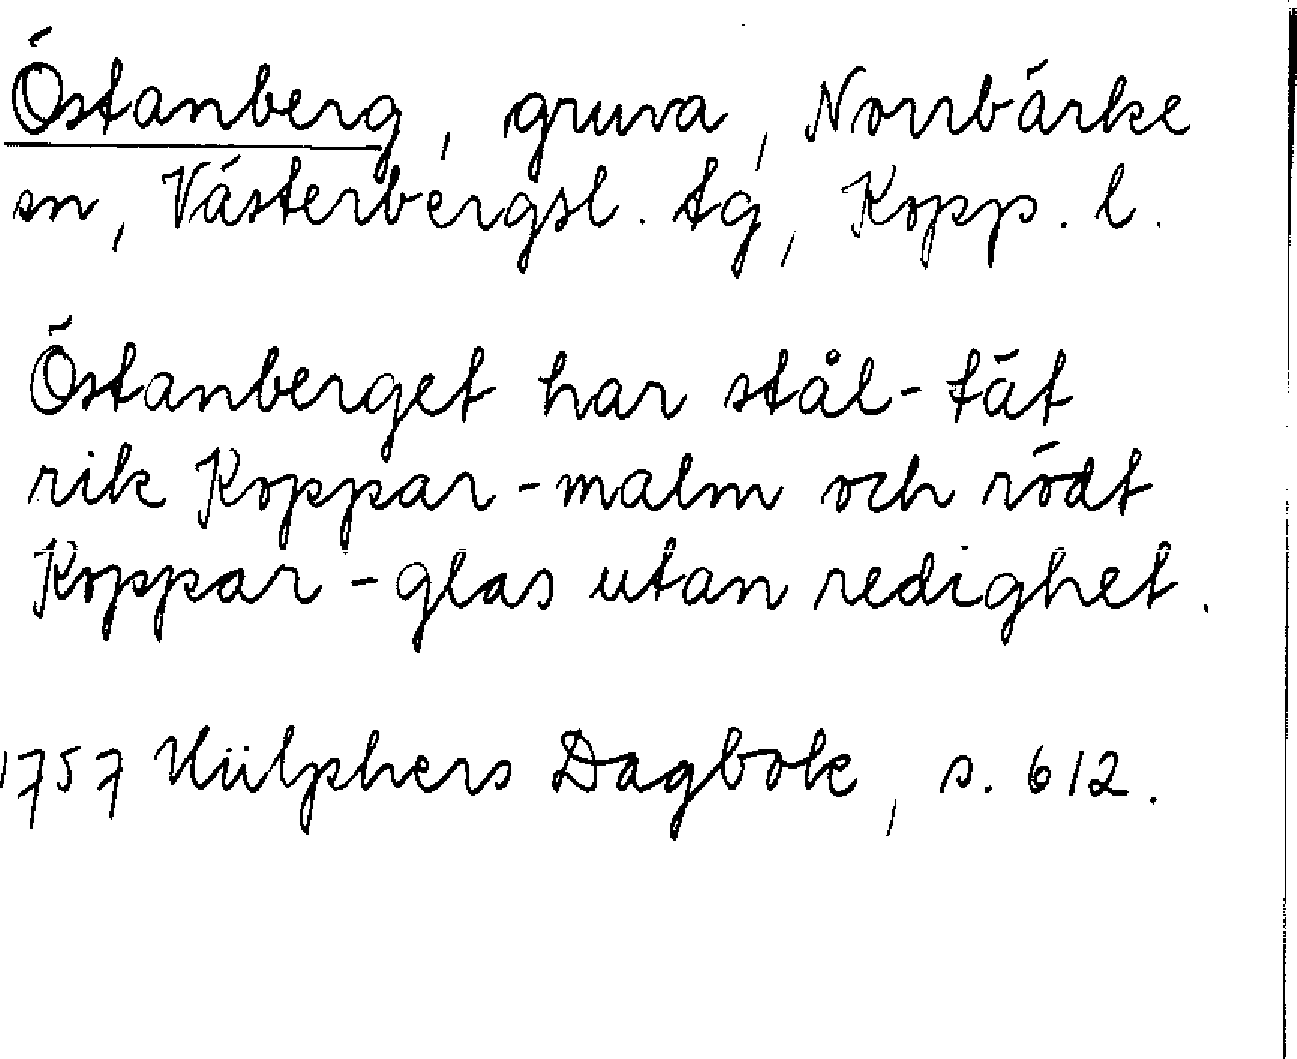 Östanberg, gruva, Norrbärke
sn, Västerbergsl. tg, Kopp. l.
Östanberget har stål-tät
rik Koppar-malm och rödt
Koppar-glas utan redighet.
1757 Hülphers Dagbok, s. 612.